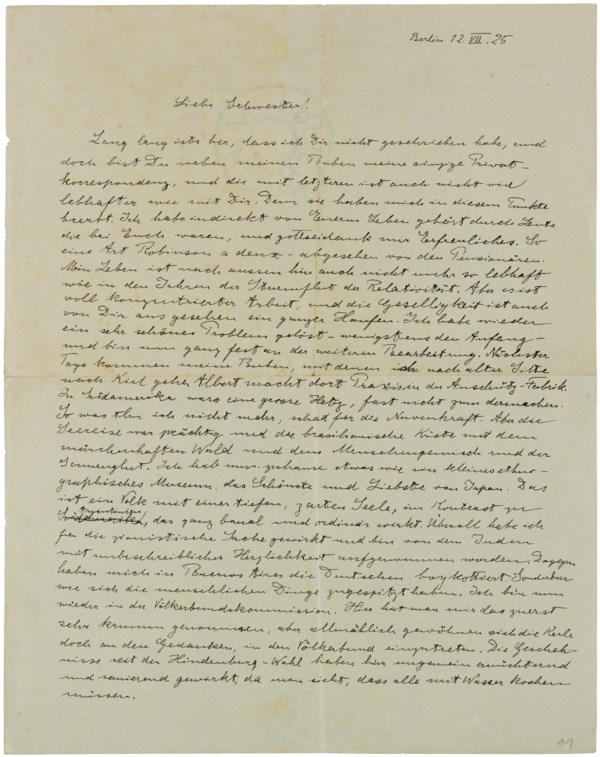 Berlin 12. VII. 25
Liebe Schwester!
Lang lang ists her, dass ich Dir nicht geschrieben habe, und
doch bist Du neben meinen Buben meine einzige Privat-
korrespondenz, und die mit letzteren ist auch nicht viel
lebhafter wie mit Dir. Denn sie haben mich in diesem Punkte
beerbt. Ich habe indirekt von Euerm Leben gehört durch Leute
die bei Euch waren, und gottseidank nur Erfreuliches. So
eine Art Robinson a deux - abgesehen von den Pensionären.
Mein Leben ist nach aussen hin auch nicht mehr so lebhaft
wie in den Jahren der Sturmflut der Relativität. Aber es ist
voll konzentrierter Arbeit, und die Geselligkeit ist auch
von Dir aus gesehen ein ganzer Haufen. Ich habe wieder
ein sehr schönes Problem gelöst - wenigstens den Anfang -
und bin nun ganz fest an der weiteren Bearbeitung. Nächster
Tage kommen meine Buben, mit denen ich nach alter Sitte
nach Kiel gehe. Albert macht dort Praxis in der Anschütz-Fabrik.
In Südamerika wars eine grosse Hetz, fast nicht zum dermachen.
So was thu ich nicht mehr, schad für die Nervenkraft. Aber die
Seereise war prächtig und die brasilianische Küste mit dem
märchenhaften Wald und dem Menschengemisch und der
Sonnenglut. Ich hab nun zuhause etwas wie ein kleines ethno-
graphisches Museum, das Schönste und Liebste von Japan. Das
ist ein Volk mit einer tiefen, zarten Seele, im Kontrast zu
Argentinien
Südamerika, das ganz banal und ordinär wirkt. Überall habe ich
für die zionistische Sache gewirkt und bin von den Juden
mit unbeschreiblicher Herzlichkeit aufgenommen worden. Dagegen
haben mich in Buenos Aires die Deutschen boykottiert. Sonderbar
wie sich die menschlichen Dinge zugespitzt haben. Ich bin nun
wieder in der Völkerbundskommission. Hier hat man mir das zuerst
sehr krumm genommen, aber allmählich gewöhnen sich die Kerle
doch an den Gedanken, in den Völkerbund einzutreten. Die Gescheh-
nisse seit der Hindenburg-Wahl haben hier ungemein ernüchternd
und sanierend gewirkt, da man sieht, dass alle mit Wasser kochen
müssen.